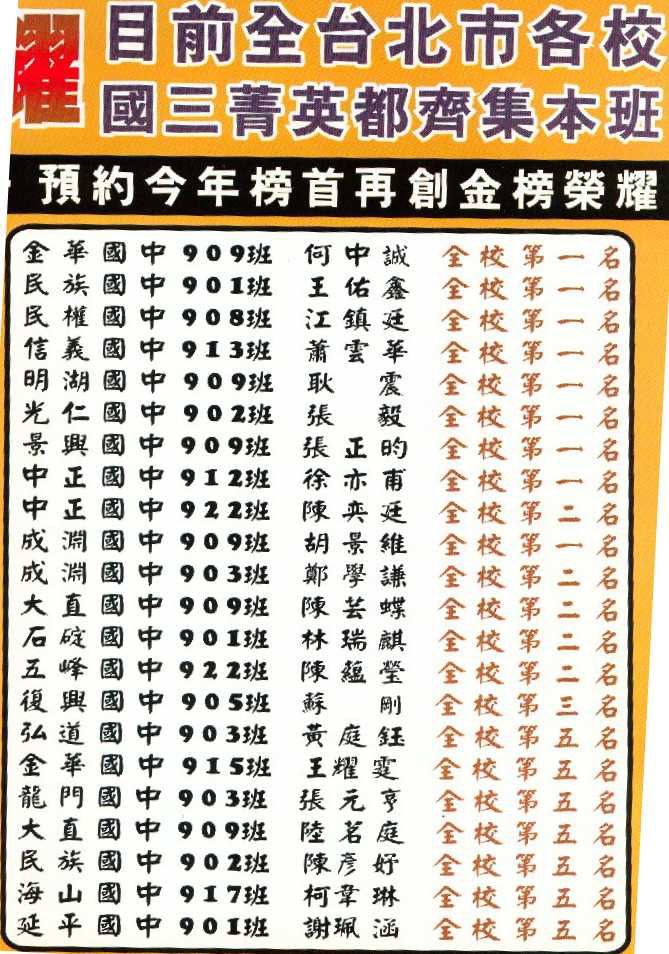 耀
目前全台北市各校
國三菁英都齊集本班
預約今年榜首再創金榜榮耀
金華國中909班 何中誠 全校第一名
民族國中901班 王佑鑫 全校第一名
民權國中908班 江鎮廷 全校第一名
信義國中913班 蕭雲華 全校第一名
明湖國中909班 耿震 全校第一名
光仁國中902班 張毅 全校第一名
景興國中909班 張正昀 全校第一名
中正國中912班 徐亦甫 全校第一名
中正國中922班 陳奕廷 全校第二名
成淵國中909班 胡景維 全校第一名
成淵國中903班 鄭學謙 全校第二名
大直國中909班 陳芸蝶 全校第二名
石碇國中901班 林瑞麒 全校第二名
五峰國中922班 陳蘊瑩 全校第二名
復興國中905班 蘇剛 全校第三名
弘道國中903班 黃庭鈺 全校第五名
金華國中915班 王耀霆 全校第五名
龍門國中903班 張元亨 全校第五名
大直國中909班 陸茗庭 全校第五名
民族國中902班 陳彥妤 全校第五名
海山國中917班 柯韋琳 全校第五名
延平國中901班 謝珮涵 全校第五名